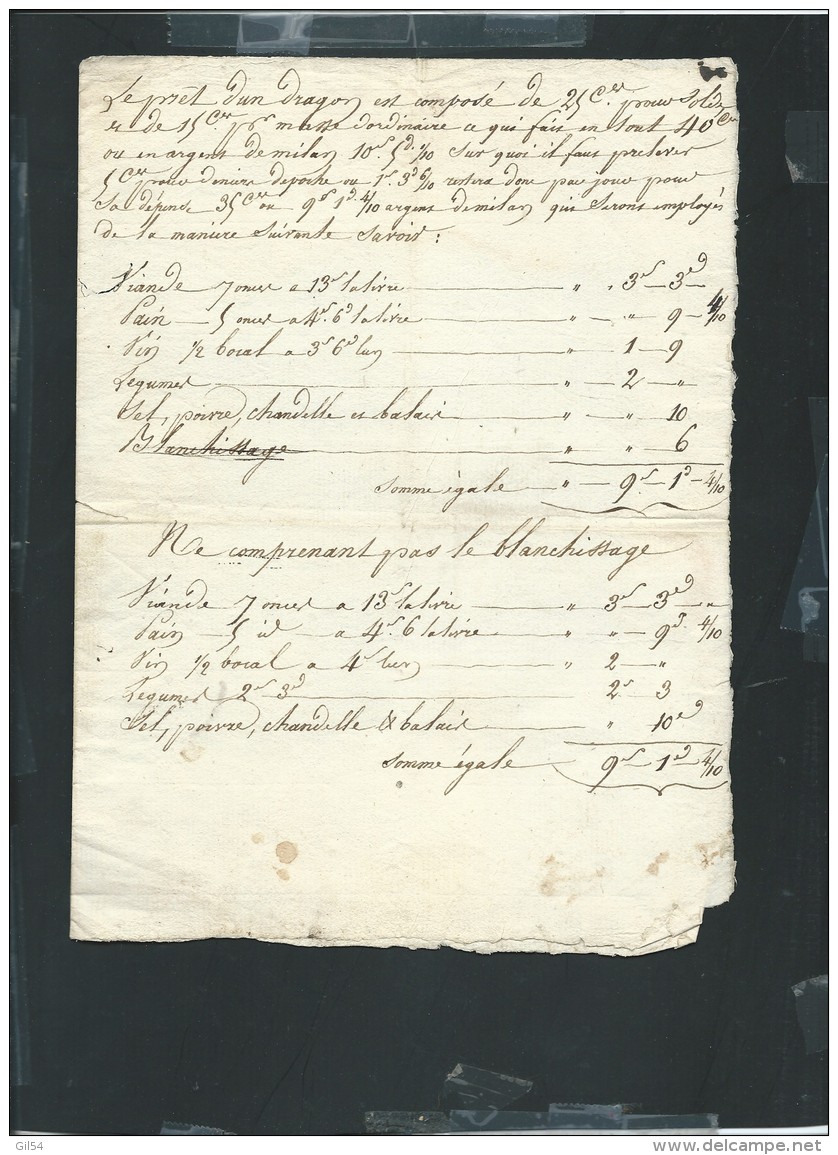 Le prêt d'un dragon est composé de 25 C.es pour Solde
et de 15 C.es pr masse dordinaire ce qui fait en tout 40 C.es
ou en argent de milan 10 s. 5 d. 1/10 Sur quoi il faut prelever
5 C.es pour deniers depoche ou 1 s. 3 d 6/10 restera donc par jour pour
Sa dépense 35 C.es ou 9 s 1 d. 4/10 argent de milan qui Seront employés
de la maniere Suivante Savoir :
Viande 7 onces a 13 s la livre — " . 3 s — 3 d
Pain — 5 onces a 4 s. 6 d la livre — " — " — 9 — 4/10
Vin 1/2 bocal a 3 s 6 d lun — " — 1 — 9
Legumes — " — 2 — "
Sel, poivre, chandelle et balais — " — " — 10
Blanchissage — " " 6
Somme égale — " — 9 s. — 1 d — 4/10
Ne comprenant pas le blanchissage
Viande 7 onces a 13 s la livre — " 3 s — 3 d — "
Pain — 5 id — a 4 s. 6 la livre — " — " — 9 d. 4/10
Vin 1/2 bocal a 4 s lun — " 2 — "
Legumes 2 s 3 d — 2 s 3
Sel, poivre, chandelle & balais — " 10 d
Somme égale — 9 s — 1 d — 4/10
Gil54
www.delcampe.net